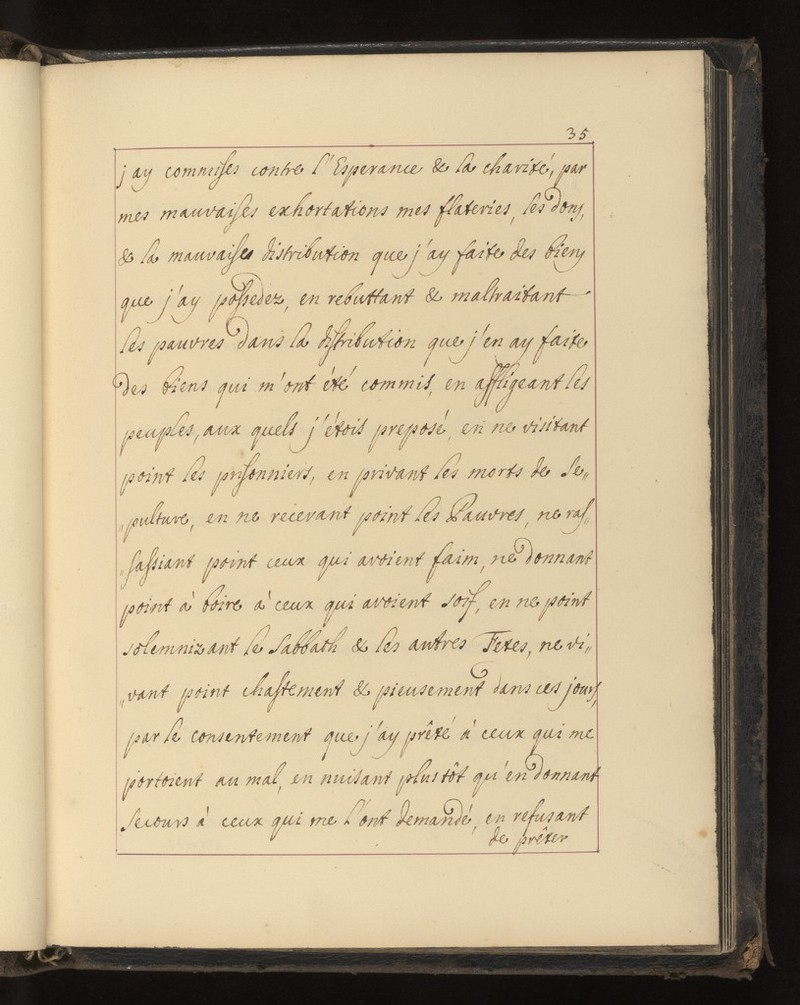 35
j ay commises contre l'Esperance & la charité, par
mes mauvaises exhortations mes flateries, les Dons,
& la mauvaises distribution que j'ay faite des biens
que j'ay possedez, en rebuttant & maltraitant
les pauvres Dans la distribution que j'en ay faite
Des biens qui m'ont été commis, en affligeant les
peuples, aux quels j'étois preposé, en ne visitant
point les prisonniers, en privant les morts de Se„
„pulture, en ne recevant point les Pauvres, ne ras„
„sassiant point ceux qui avoient faim, ne Donnant
point à boire à ceux qui avoient soif, en ne point
solemnizant le Sabbath & les autres Fetes, ne vi„
„vant point chastement & pieusement dans ces jours,
par le consentement que j'ay prêté à ceux qui me
portoient au mal, en nuisant plus tôt qu'en Donnant
secours à ceux qui me l'ont demandé, en refusant
de prêter